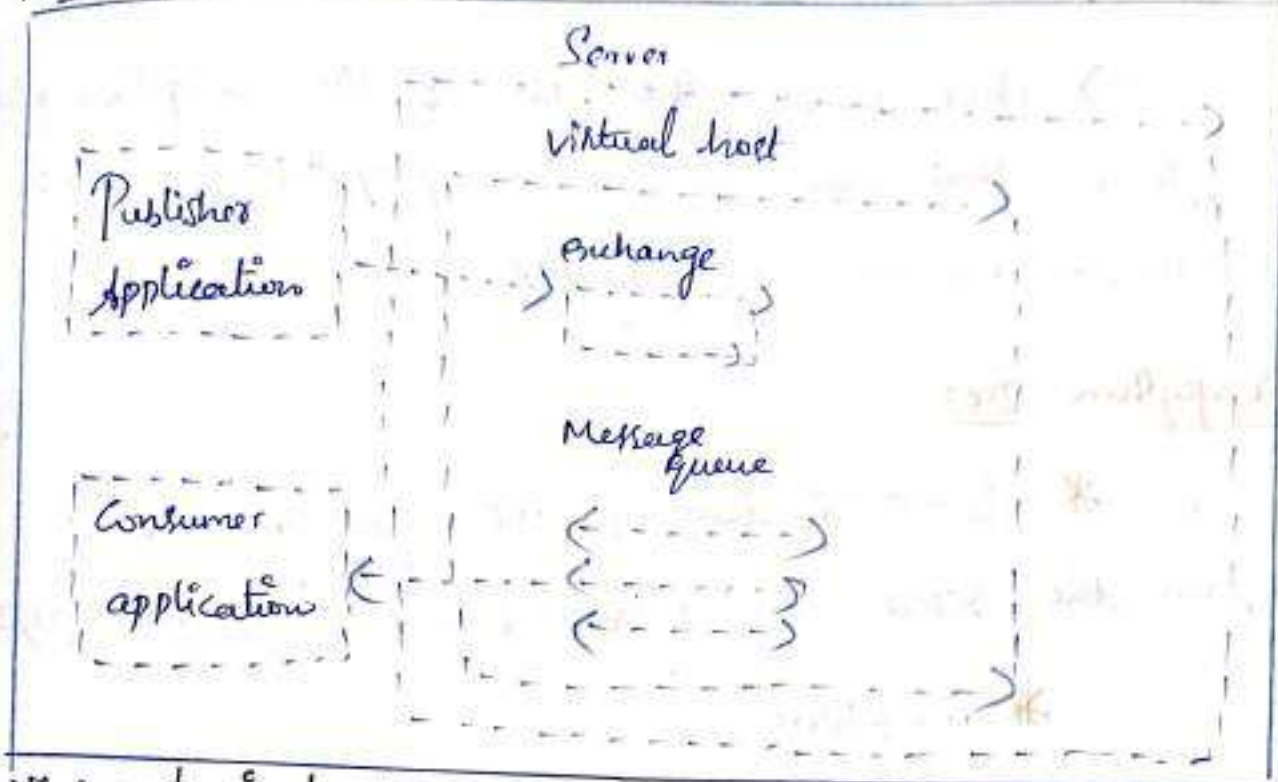 Server
virtual host
Publisher
Application
Exchange
Message
queue
Consumer
application